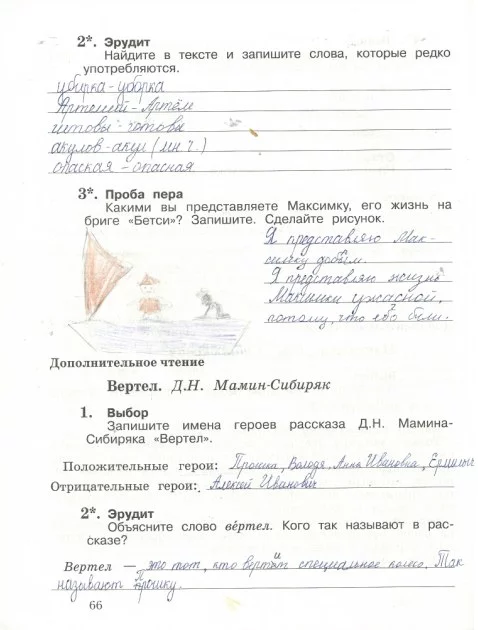 2*. Эрудит
Найдите в тексте и запишите слова, которые редко
употребляются.
убирка - уборка
Артемий - Артём
готовы - готовы
акулов - акул (мн ч.)
опаская - опасная
3*. Проба пера
Какими вы представляете Максимку, его жизнь на
бриге «Бетси»? Запишите. Сделайте рисунок.
Я представляю Мак-
симку добым.
Я представляю жизнь
Максимки ужасной,
потому, что его били.
Дополнительное чтение
Вертел. Д.Н. Мамин-Сибиряк
1. Выбор
Запишите имена героев рассказа Д.Н. Мамина-
Сибиряка «Вертел».
Положительные герои: Прошка, Володя, Анна Ивановна, Ермилыч
Отрицательные герои: Алексей Иванович
2*. Эрудит
Объясните слово ве́ртел. Кого так называют в рас-
сказе?
Вертел — это тот, кто вертит специальное колесо. Так
называют Прошку.
66